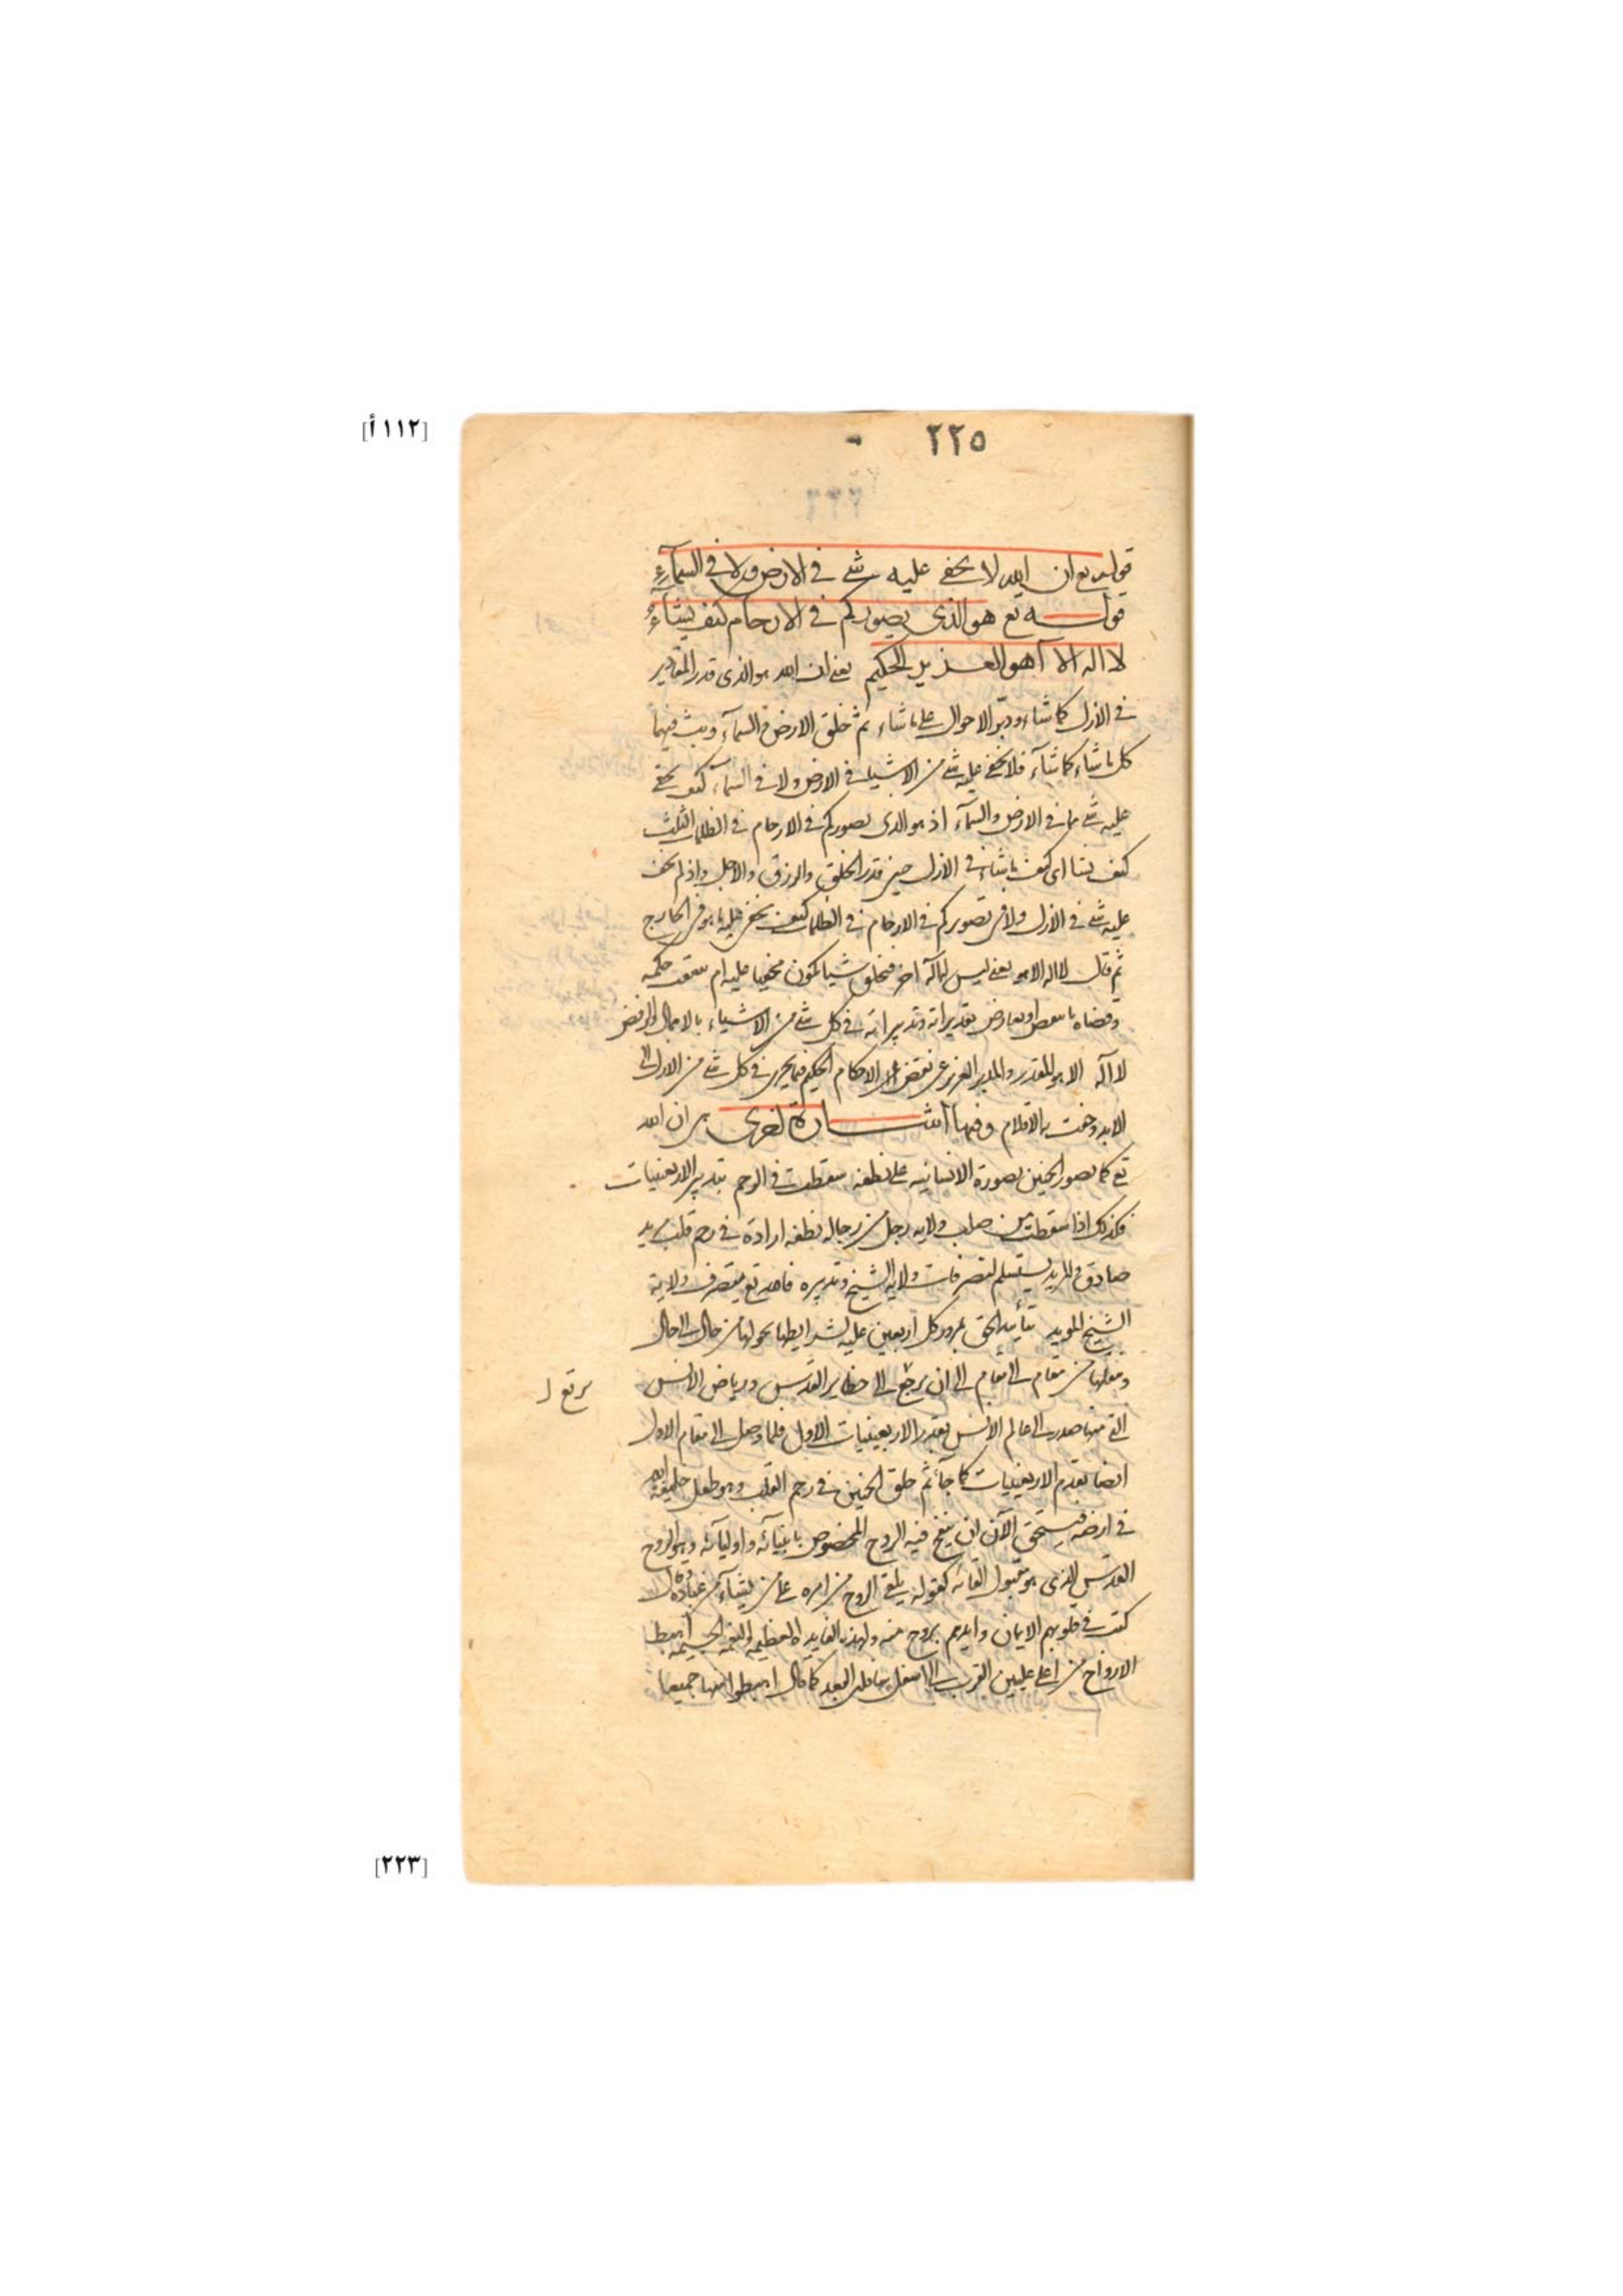 [١١٢ أ]
٢٢٥
قوله تع ان الله لا يخفى عليه شئ في الارض ولا في السمآء
قولـــه تع هو الذى يصوركم في الارحام كيف يشآء
لا اله الا هو العزيز الحكيم يعنى ان الله هو الذى قدر المقادير
في الازل كما شاء ودبر الاحوال على ما شاء ثم خلق الارض والسمآء وبث فيهما
كل ما شاء كما شآء فلا يخفى عليه شئ من الاشياء في الارض ولا في السمآء كيف يخفى
عليه شئ مما في الارض والسمآء اذ هو الذى يصوركم في الارحام في الظلمات الثلث
كيف يشا اى كيف ما شاء في الازل حين قدر الخلق والرزق والاجل واذ لم يخف
عليه شئ في الازل ولا في تصويركم في الارحام في الظلمات كيف يخفى عليه ما هو في الخارج
ثم قال لا اله الا هو يعنى ليس اله آخر فيخلق شيا يكون مخفيا عليه ام حكمه
وقضاه او يعارض تقديراته وتدبيراته في كل شئ من الاشياء بالاهمال والرفض
لا اله الا هو المقدر والمدبر العزيز عن نقض الاحكام الحكيم فيما يجرى في كل شئ من الازل الى
الابد وجفت به الاقلام وفيها اشــــارة اخرى ان الله
تع كما يصور الجنين بصورة الانسانيه على نطفه سقطت في الرحم بتدبير الاربعينيات
فكذلك اذا سقطت من صلب ولايه رجل من رجاله نطفه ارادة في رحم قلب مريد
صادق والمريد يستسلم لتصرفات ولايه الشيخ وتدبيره فالله تع بتصرف ولاية
الشيخ المويد بتأييد الحق بمرور كل اربعين عليه بشرايطها يحولها من حال الى حال
وينقلها من مقام الى مقام الى ان يرجع الى حظاير القدس ورياض الانس
يرتع ل
التي منها صدرت الى عالم الانس بقدر الاربعينيات الاول فلما وصل الى مقام الاول
ايضا بقدم الاربعينيات كما جآء ثم خلق الجنين في رحم القلب وهو طفل خليفة الله
في ارضه فيستحق الآن ان ينفخ فيه الروح المخصوص بانبيآئه واوليآئه وهو الروح
القدس الذى هو مقبول القائه كقوله يلقى الروح من امره على من يشآء من عباده وقال
كتب في قلوبهم الايمان وايدهم بروح منه ولهذه الفايده العظيمه والنعمه الجسيمه اهبط
الارواح من اعلى عليين القرب الى اسفل سافلين البعد كما قال اهبطوا منها جميعا
[٢٢٣]